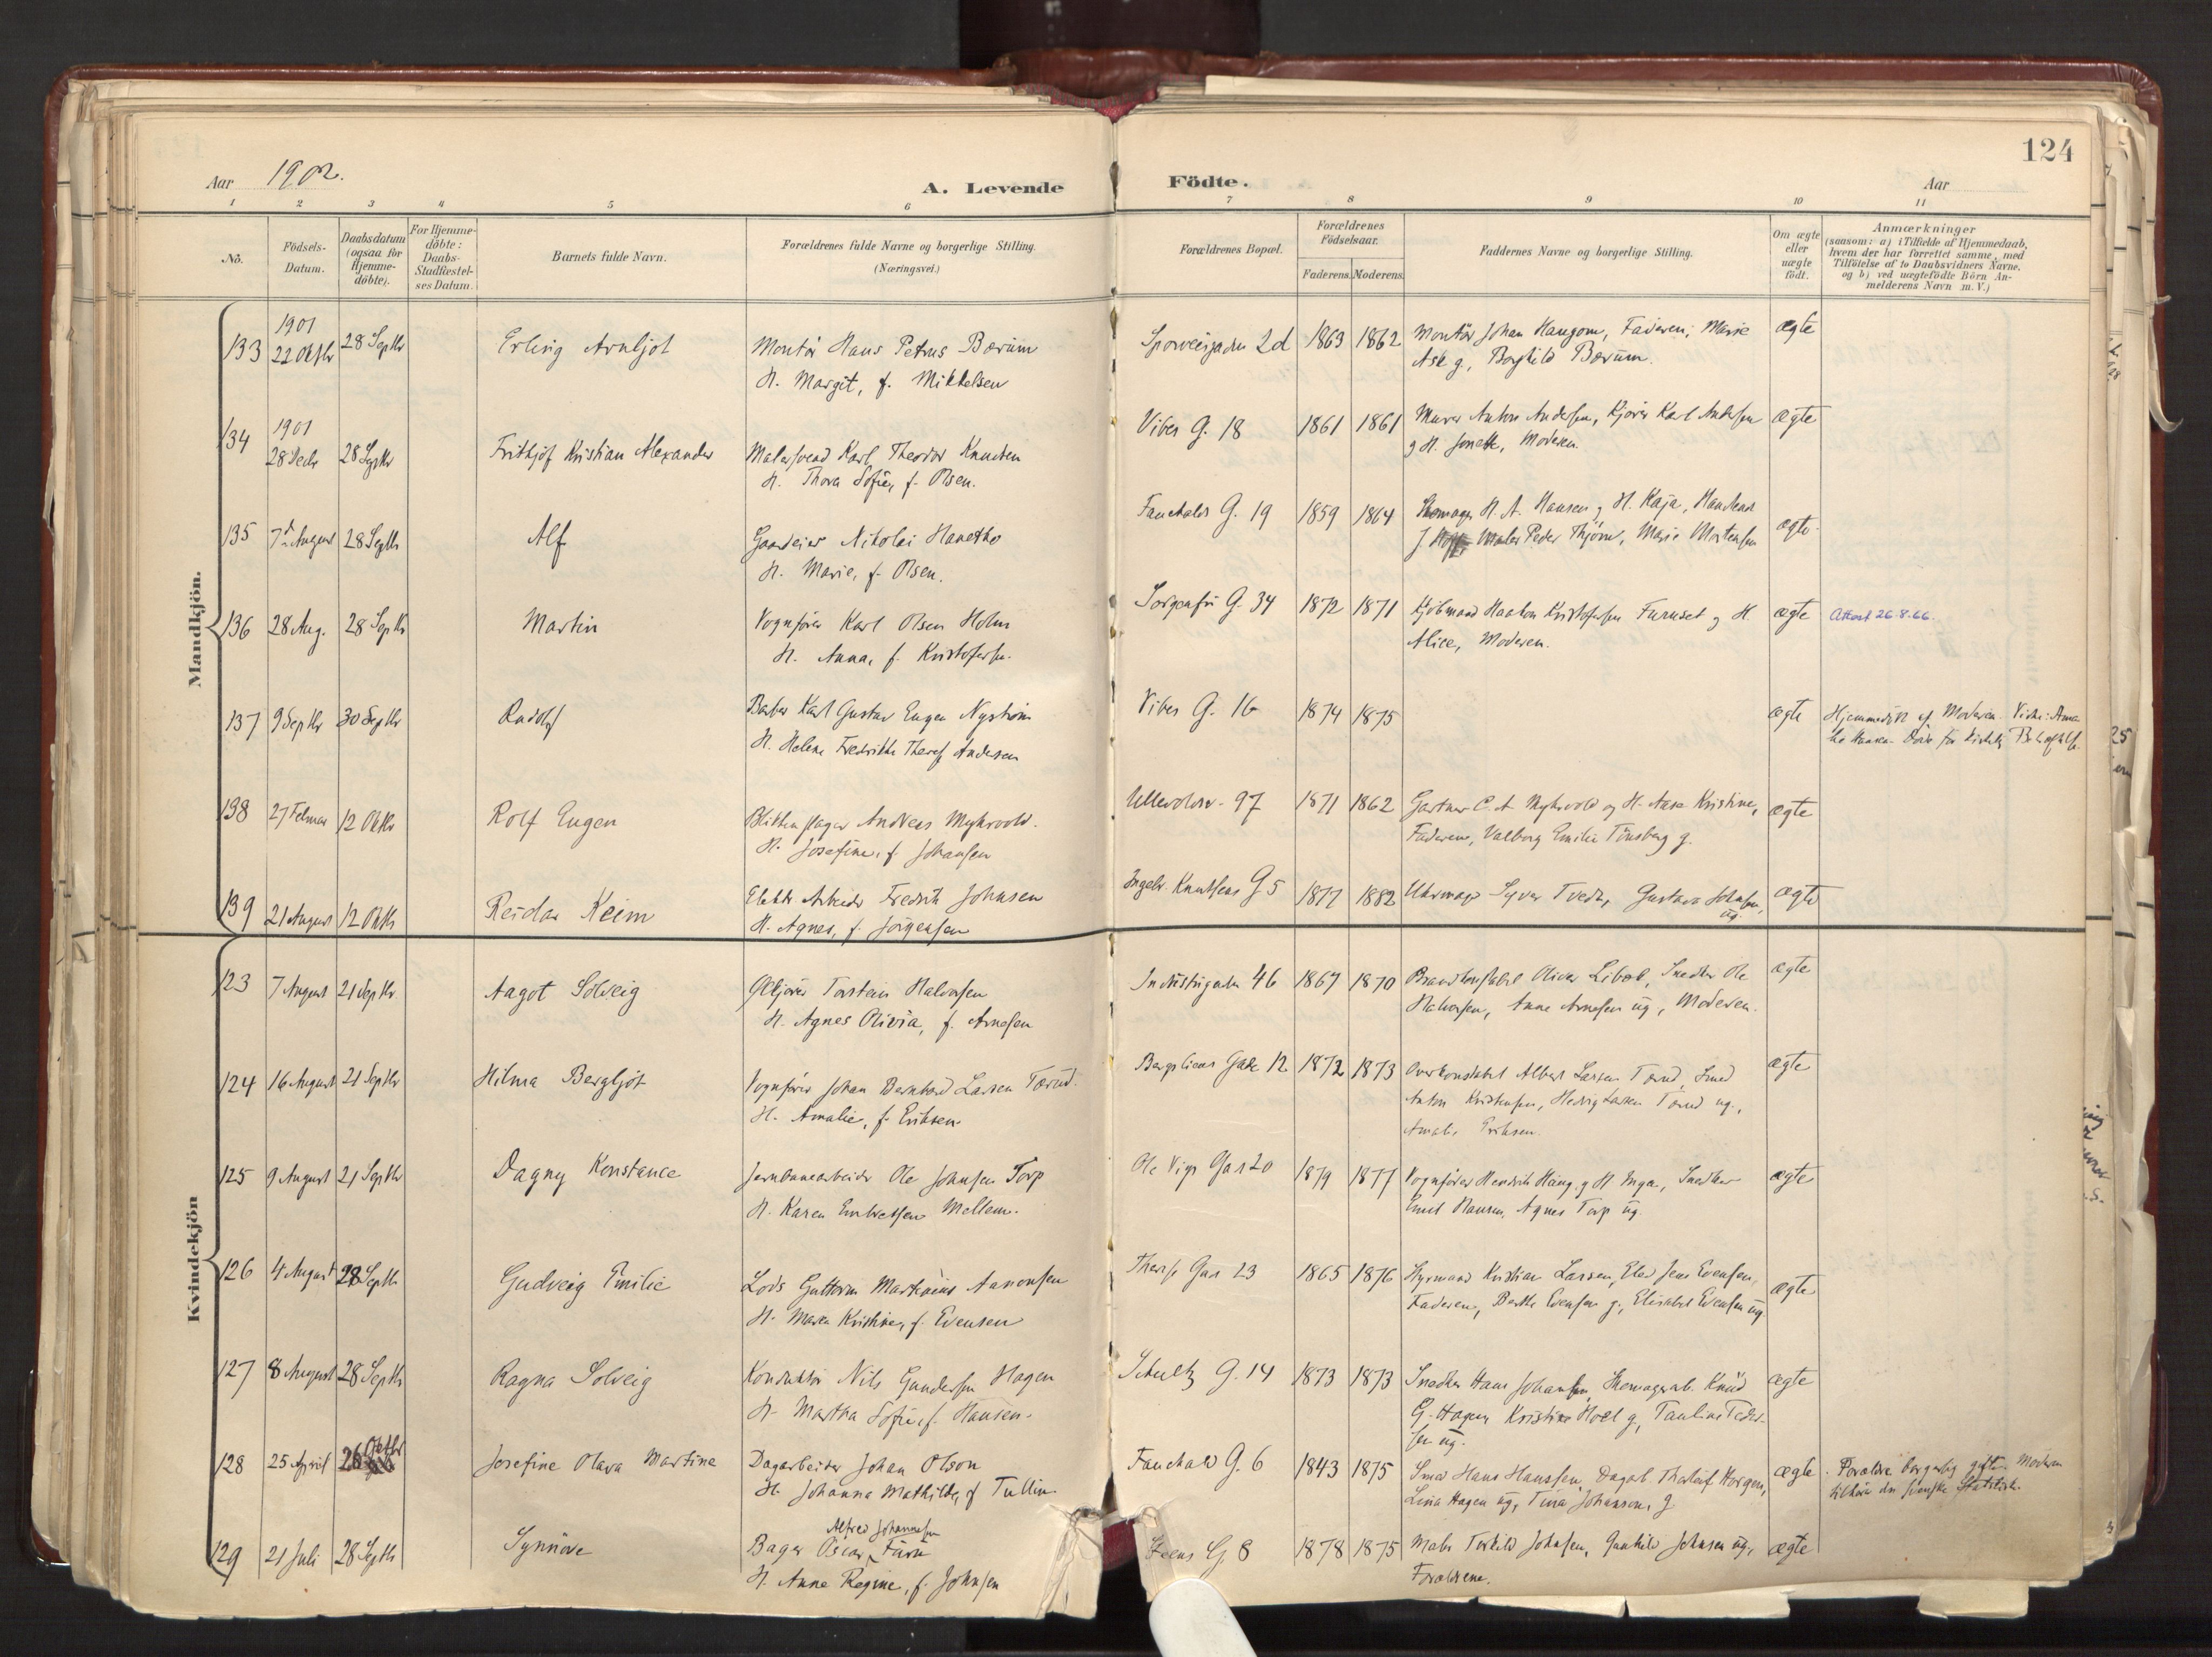 124
Aar 1902.
A. Levende Födte.
Aar
1 2 3 4 5 6 7 8 9 10 11
Nô.
Födsels-Datum.
Daabsdatum (ogsaa for Hjemme-döbte).
For Hjemme-döbte: Daabs-Stadfæstel-ses Datum.
Barnets fulde Navn.
Forældrenes fulde Navne og borgerlige Stilling. (Næringsvei.)
Forældrenes Bopæl.
Forældrenes Födselsaar.
Faderens. Moderens.
Faddernes Navne og borgerlige Stilling.
Om ægte eller uægte födt.
Anmærkninger
(saasom: a) i Tilfælde af Hjemmedaab,
hvem der har forrettet samme, med
Tilföielse af to Daabsvidners Navne,
og b) ved uægtefödte Börn An-
melderens Navn m. V.)
Mandkjön.
133 1901 22 Oktbr 28 Septbr Erling Arnljot Montör Hans Petrus Bærum Sporveisgaden 2d 1863 1862 Montör Johan Haugom, Faderen, Marie ægte
H. Margit, f. Mikkelsen Ask g., Borghild Bærum.
134 1901 28 Decbr 28 Septbr Frithjof Kristian Alexander Malersvend Karl Theodor Knudsen Vibes G. 18 1861 1861 Murer Anton Andersen, Kjører Karl Andersen ægte
H. Thora Sofie, f. Olsen. g H. Jonette, Moderen.
135 7d August 28 Septbr Alf Gaardeier Nikolai Hanetho Fauchalds G. 19 1859 1864 Skomager H. A. Hansen g H. Kaja, ægte
H. Marie, f. Olsen. Maler Peder Thjøme, Marie Mortensen
136 28 Aug. 28 Septbr Martin Vognfører Karl Olsen Holm Sorgenfri G. 34 1872 1871 Kjøbmand Haakon Kristofersen Furuset g H. ægte Attest 26-8-66.
H. Anna, f. Kristofersen. Alice, Moderen.
137 9 Septbr 30 Septbr Rudolf Barber Karl Gustav Eugen Nyström Vibes G. 16 1874 1875 ægte Hjemmedøbt af Moderen.
H. Helene Fredrikke Therese Andersen Hansen. Døde før kirkelig
138 27 Februar 12 Oktbr Rolf Eugen Blikkenslager Andreas Myhrvold. Ullevolsv. 97 1871 1862 Gartner C. A. Myhrvold og H. Aase Kristine, ægte
H. Josefine, f. Johansen Faderen, Valborg Emilie Tönsberg g.
139 21 August 12 Oktbr Reidar Keim Elektr. Arbeider Fredrik Johnsen Ingebr. Knudsens G 5 1877 1882 Uhrmager Syver Tvedt, Gustava Johnsen, ug ægte
H. Agnes, f. Jörgensen
Kvindekjön
123 7 August 21 Septbr Aagot Solveig Ølkjører Torstein Halvorsen Industrigaden 46 1867 1870 Brandkonstabel Oliver Libæk, Snedker Ole ægte
H. Agnes Olivia, f. Arnesen Halvorsen, Anna Arnesen ug, Moderen.
124 16 August 21 Septbr Hilma Bergljot Vognfører Johan Bernhard Larsen Tærud. Bergsliens Gade 12 1872 1873 Overkonstabel Albert Larsen Tærud, Smed ægte
H. Amalie, f. Eriksen. Anton Kristensen, Hedvig Larsen Tærud ug.,
Amalie Eriksen.
125 9 August 21 Septbr Dagny Konstance Jernbanearbeider Ole Johnsen Torp Ole Vigs Gade 20 1879 1877 Vognfører Hendrik Haug g H. Inga, Snedker ægte
H. Karen Embretsen Mellem. Emil Hansen, Agnes Torp ug.
126 4 August 28 Septbr Gudveig Emilie Lods Guttorm Martinius Aanonsen Theres. Gade 23 1865 1876 Styrmand Kristian Larsen, Elev Jens Evensen, ægte
H. Maren Kristine, f. Evensen Faderen, Berthe Evensen g., Elisabet Evensen ug
127 8 August 28 Septbr Ragna Solveig Konduktör Nils Gundersen Hagen Schultz G. 14 1873 1873 Snedker Hans Johansen, Skomagerarb. Knud ægte
H. Martha Sofie, f. Hansen. G. Hagen Kristine Hoel g., Pauline Peder-
sen ug.
128 25 April 26 Oktbr Josefine Olava Martina Dagarbeider Johan Olson Fauchald G. 6 1843 1875 Smed Hans Hanssen, Dagarb. Thoralf Horgen, ægte Forældre borgerlig gifte. Moderen
H. Johanna Mathilde, f Tullin Lina Hagen ug, Tina Johanson, g tilhører den svenske Statskirke.
129 21 Juli 28 Septbr Synnöve Alfred Johannesen
Bager Oscar Furu Steens G 8 1878 1875 Maler Torkild Johnsen, Gunhild Johnsen ug, ægte
H. Anna Regine, f. Johnsen Forældrene.